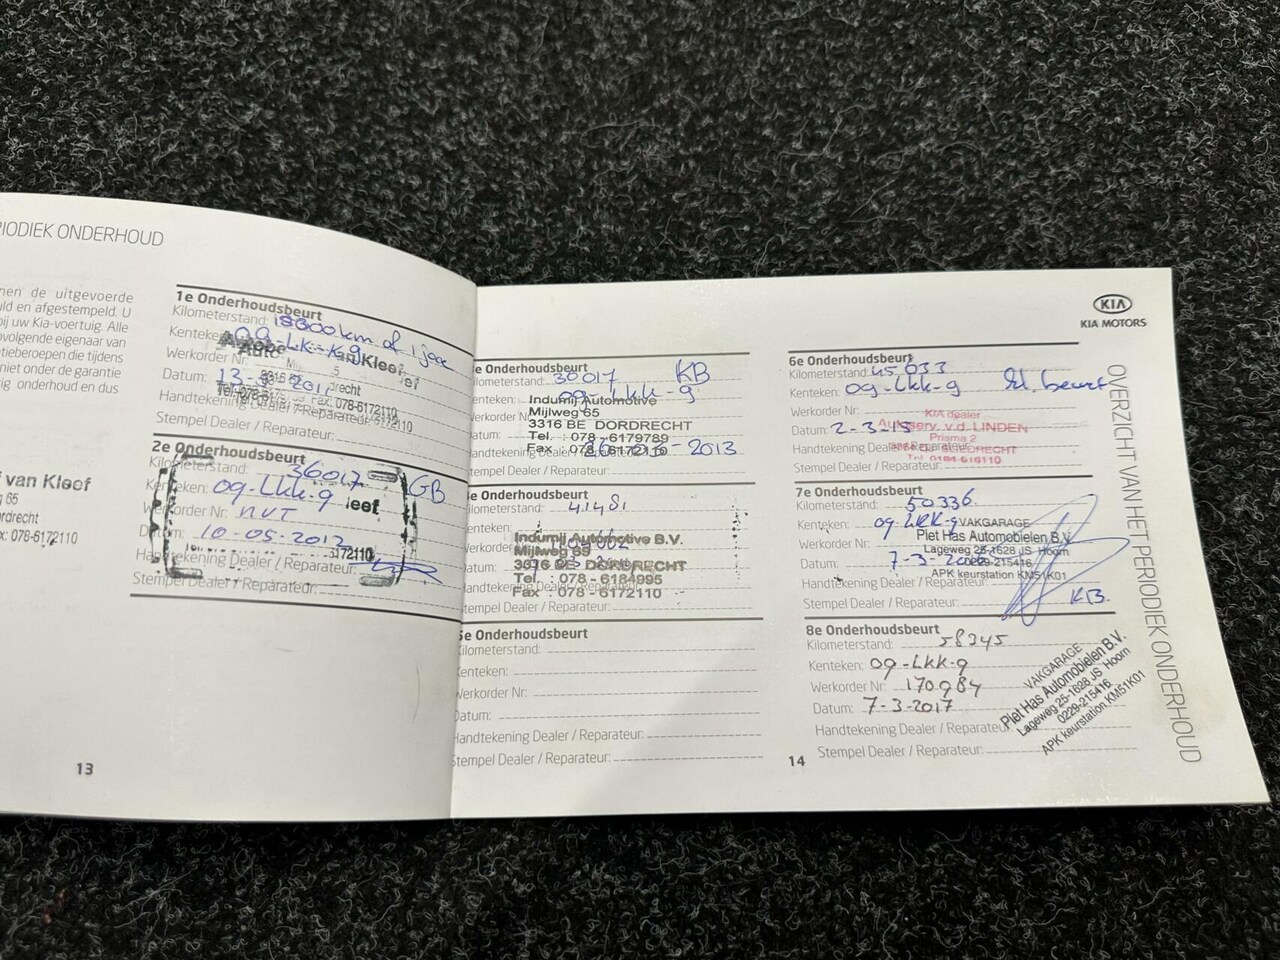 RIODIEK ONDERHOUD
nen de uitgevoerde
ld en afgestempeld. U
ij uw Kia-voertuig. Alle
volgende eigenaar van
tieberoepen die tijdens
niet onder de garantie
rig onderhoud en dus
van Kleef
65
ordrecht
x: 078-6172110
13
1e Onderhoudsbeurt
Kilometerstand:
Kenteken:
van Kleef
Werkorder Nr:
Datum: 13
Tel. 078-
Fax: 078-6172110
Handtekening Dealer / Reparateur:
Stempel Dealer / Reparateur:
2e Onderhoudsbeurt
Kilometerstand: 36017
GB
Kenteken: 09-Lkk-9
leef
Werkorder Nr: nvt
Datum: 10-05-2012
6172110
Handtekening Dealer / Reparateur:
Stempel Dealer / Reparateur:
e Onderhoudsbeurt
ilometerstand: 30017 KB
enteken: 09-Lkk-9
Indumij Automotive
Mijlweg 65
Werkorder Nr
3316 BE DORDRECHT
atum:
Tel. : 078 - 6179789
Fax : 078 - 6172110
2013
Handtekening Dealer / Reparateur:
Stempel Dealer / Reparateur:
e Onderhoudsbeurt
ilometerstand:
enteken:
Indumij Automotive B.V.
Werkorder
Mijlweg 65
3316 BE DORDRECHT
Tel. : 078 - 6184995
Fax : 078 - 6172110
Stempel Dealer / Reparateur:
5e Onderhoudsbeurt
Kilometerstand:
Kenteken:
Werkorder Nr:
Datum:
Handtekening Dealer / Reparateur:
Stempel Dealer / Reparateur:
14
KIA
KIA MOTORS
6e Onderhoudsbeurt
Kilometerstand: 45033
Kenteken: 09-Lkk-9 beurt
Werkorder Nr:
KIA dealer
Datum: 2-3-15
v.d. LINDEN
Prisma 2
Handtekening Dealer / Reparateur:
SLIEDRECHT
Stempel Dealer / Reparateur:
7e Onderhoudsbeurt
Kilometerstand: 50336
Kenteken: 09-LKK-9
VAKGARAGE
Piet Has Automobielen B.V.
Werkorder Nr:
Lageweg 25-1628 JS Hoorn
Datum: 7-3-
0229-215416
APK keurstation KM51K01
Handtekening Dealer / Reparateur:
KB.
Stempel Dealer / Reparateur:
8e Onderhoudsbeurt
Kilometerstand: 58345
Kenteken: 09-LKK-9
Werkorder Nr: 170984
Datum: 7-3-2017
Handtekening Dealer / Reparateur:
Stempel Dealer / Reparateur:
VAKGARAGE
Piet Has Automobielen B.V.
Lageweg 25-1628 JS Hoorn
0229-215416
APK keurstation KM51K01
OVERZICHT VAN HET PERIODIEK ONDERHOUD